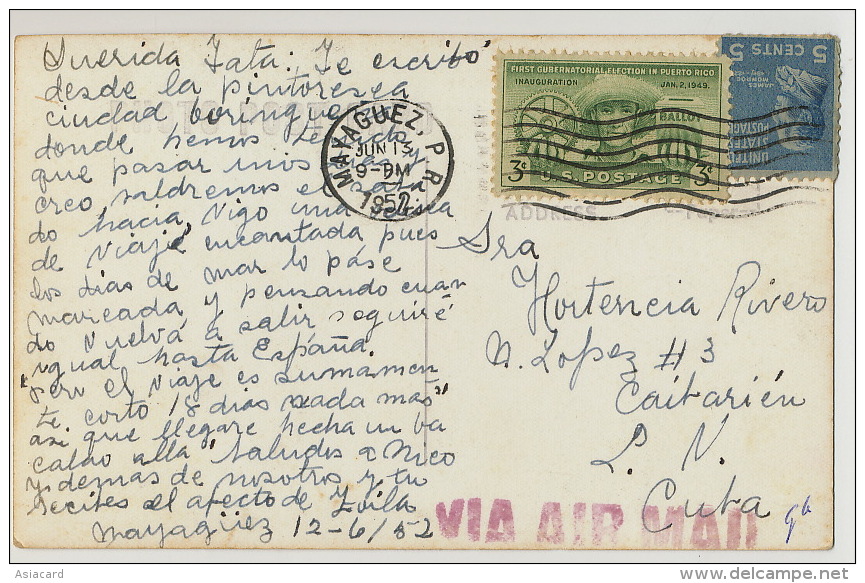 Querida Tata: Te escribo
desde la pintoresca
ciudad borinqueña
donde hemos tenido
que pasar unos dias y
creo saldremos el saba
do hacia Vigo una
de viaje encantada pues
los dias de mar lo pase
mareada y pensando cuan
do vuelva a salir, seguiré
igual hasta España.
"pero el viaje es sumamen
te corto 18 dias nada mas"
asi que llegare hecha un ba
calao alla. Saludos a Nico
y demas de nosotros y tu
recibes el afecto de Zoila
Mayagüez 12-6/52
FIRST GUBERNATORIAL ELECTION IN PUERTO RICO
INAUGURATION JAN. 2, 1949.
BALLOT
3¢ 3¢
U.S. POSTAGE
5 CENTS 5
JAMES MONROE
UNITED STATES POSTAGE
MAYAGUEZ, P.R.
JUN 13
9-PM
1952
ADDRESS
Sra
Hortencia Rivero
N. Lopez #3
Caibarién
L. V.
Cuba
VIA AIR MAIL
Asiacard
delcampe.net